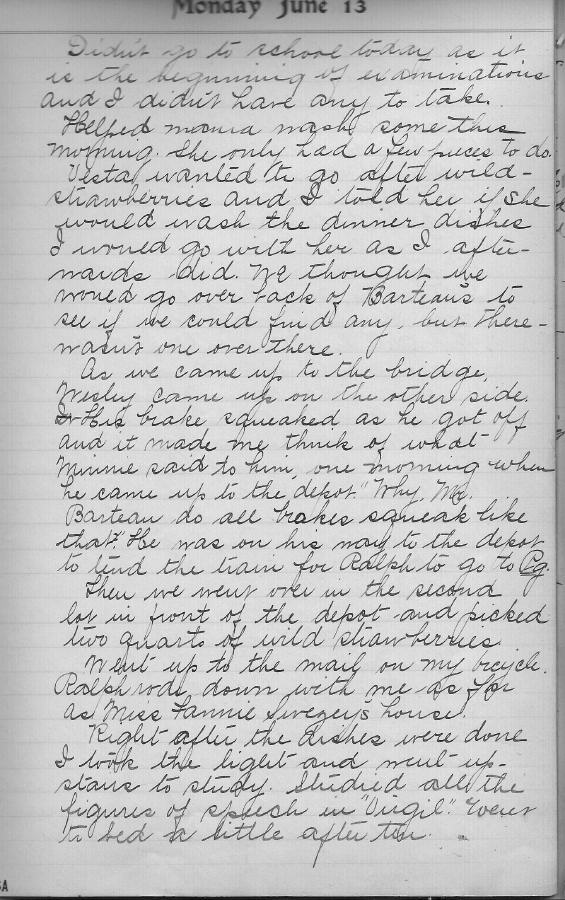 Monday June 13
Didn't go to school today as it
is the beginning of examinations
and I didn't have any to take.
Helped mama wash some this
morning. She only had a few pieces to do.
Vesta wanted to go after wild-
strawberries and I told her if she
would wash the dinner dishes
I would go with her as I after-
wards did. We thought we
would go over back of Barteau's to
see if we could find any, but there-
wasn't one over there.
As we came up to the bridge,
Wesley came up on the other side.
His brake squeaked as he got off
and it made me think of what
Minnie said to him one morning when
he came up to the depot "Why, Mr.
Barteau do all brakes squeak like
that?" He was on his way to the depot
to tend the train for Ralph to go to Pg.
Then we went over in the second
lot in front of the depot and picked
two quarts of wild strawberries.
Went up to the mail on my bicycle.
Ralph rode down with me as far
as Miss Fannie Swezey's house.
Right after the dishes were done
I took the light and went up-
stairs to study. Studied all the
figures of speech in "Virgil". Went
to bed a little after ten.